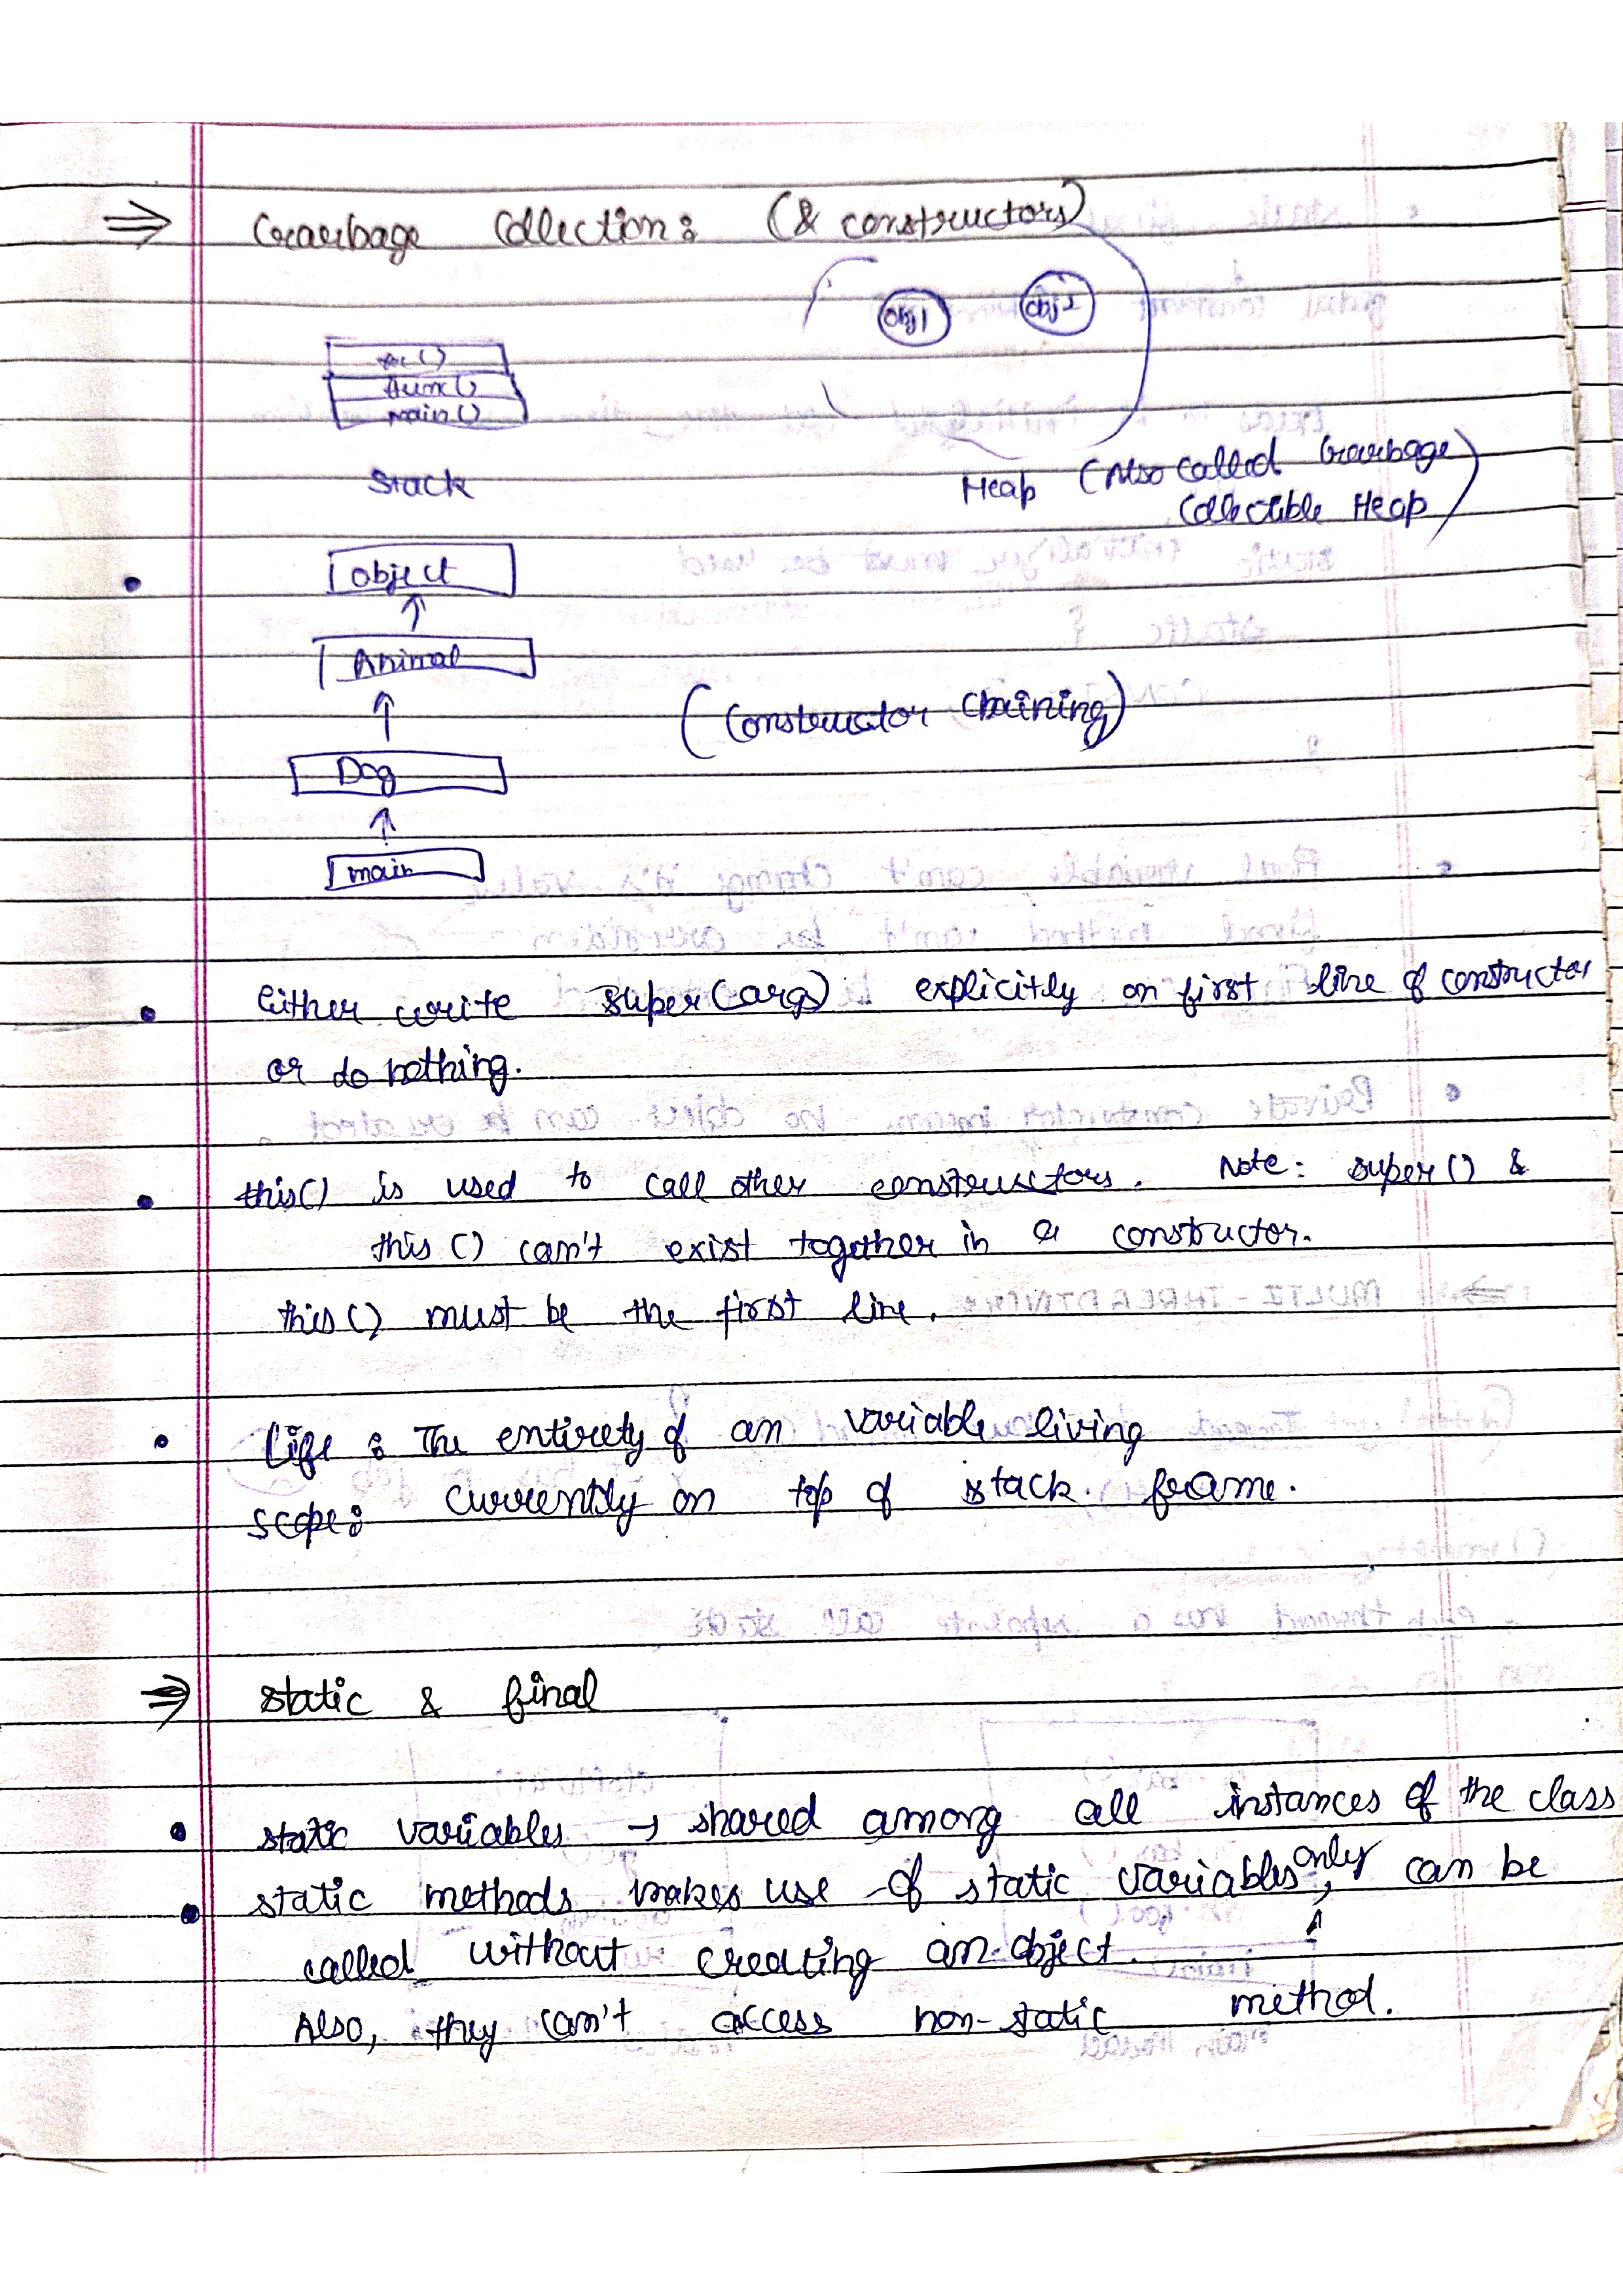 ⇒ Garbage Collection: (& constructors)
obj1 obj2
func()
main()
Stack
Heap (Also called Garbage
Collectible Heap)
• object
↑
Animal
↑
(Constructor Chaining)
Dog
↑
main
• Either write super(args) explicitly on first line of constructor
or do nothing.
• this() is used to call other constructors. Note: super() &
this() can't exist together in a constructor.
this() must be the first line.
• Life: The entirety of an variable living
scope: currently on top of stack frame.
⇒ static & final
• static variables → shared among all instances of the class
• static methods makes use of static variables only, can be
called without creating an object.
Also, they can't access non-static method.